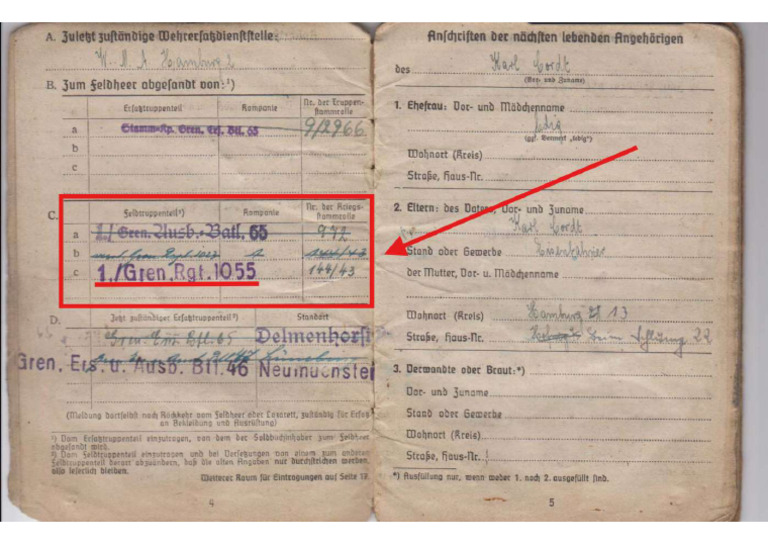 A. Zuletzt zuständige Wehrersatzdienststelle:
W. M. A. Hamburg 2
B. Zum Feldheer abgesandt von:¹)
Ersatztruppenteil Kompanie Nr. der Truppenstammrolle
a Stamm-Kp. Gren. Ers. Btl. 65 9/2966
b
c
C. Feldtruppenteil²) Kompanie Nr. der Kriegsstammrolle
a 1./ Gren. Ausb.-Batl. 65 972
b Gren. Rgt.
c 1./Gren. Rgt. 1055 144/43
D. Jetzt zuständiger Ersatztruppenteil²) Standort
Gren. Btl. 65 Delmenhorst
Gren. Ers. u. Ausb. Btl. 46 Neumuenster
(Meldung dortselbst nach Rückkehr vom Feldheer oder Lazarett, zuständig für Ersatz
an Bekleidung und Ausrüstung)
¹) Vom Ersatztruppenteil einzutragen, von dem der Soldbuchinhaber zum Feldheer
abgesandt wird.
²) Vom Feldtruppenteil einzutragen und bei Versetzungen von einem zum anderen
Feldtruppenteil derart abzuändern, daß die alten Angaben nur durchstrichen werden,
also leserlich bleiben.
Weiterer Raum für Eintragungen auf Seite 17
4
Anschriften der nächsten lebenden Angehörigen
des Karl Cordt
(Vor- und Zuname)
1. Ehefrau: Vor- und Mädchenname
ledig
(ggf. Vermerk „ledig")
Wohnort (Kreis)
Straße, Haus-Nr.
2. Eltern: des Vaters, Vor- und Zuname
Karl Cordt
Stand oder Gewerbe
der Mutter, Vor- u. Mädchenname
Wohnort (Kreis) Hamburg 13
Straße, Haus-Nr. Beim Schlump 22
3. Verwandte oder Braut:*)
Vor- und Zuname
Stand oder Gewerbe
Wohnort (Kreis)
Straße, Haus-Nr.
*) Ausfüllung nur, wenn weder 1. noch 2. ausgefüllt sind.
5